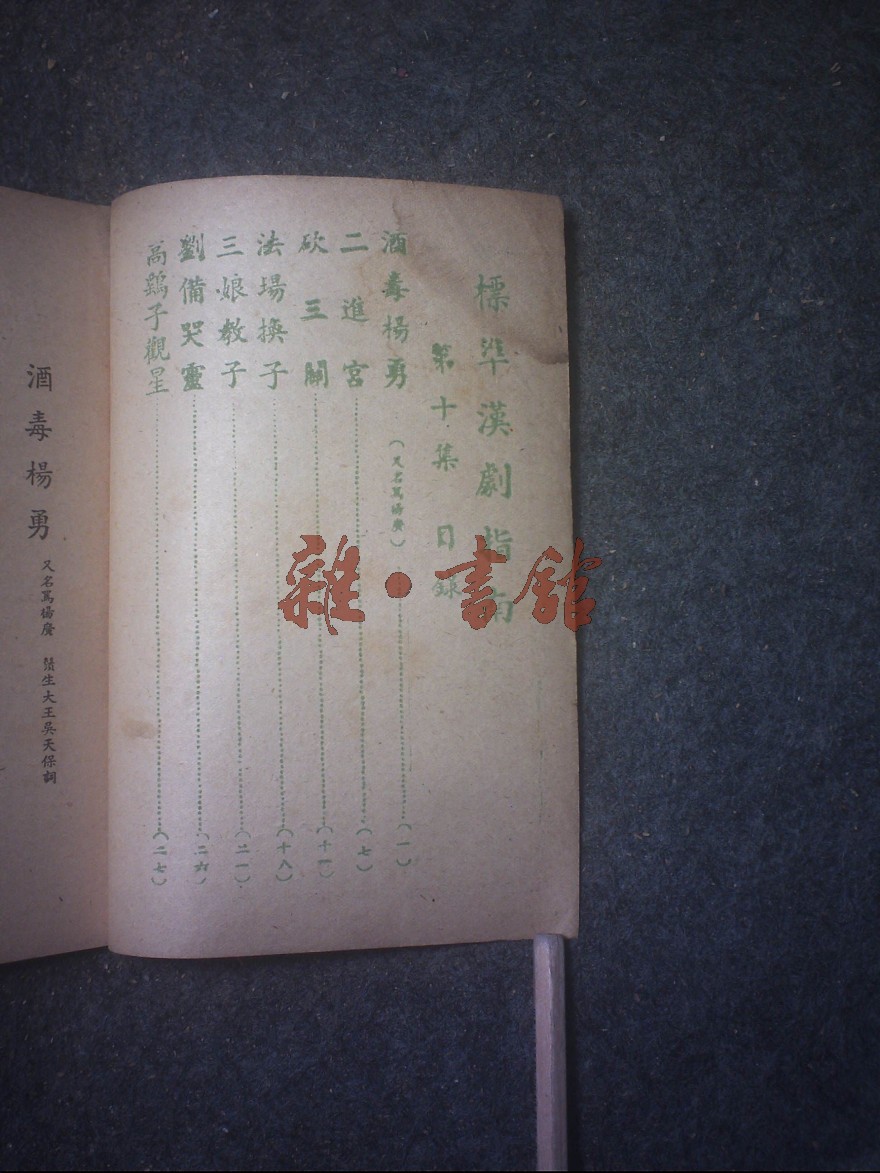 標準漢劇指南
第十集 目錄
酒毒楊勇(又名罵楊廣)(一)
二進宮(七)
砍三關(十一)
法場換子(十八)
三娘教子(二一)
劉備哭靈(二六)
高鷂子觀星(二七)
酒毒楊勇 又名罵楊廣 鬚生大王吳天保詞
雜·書館